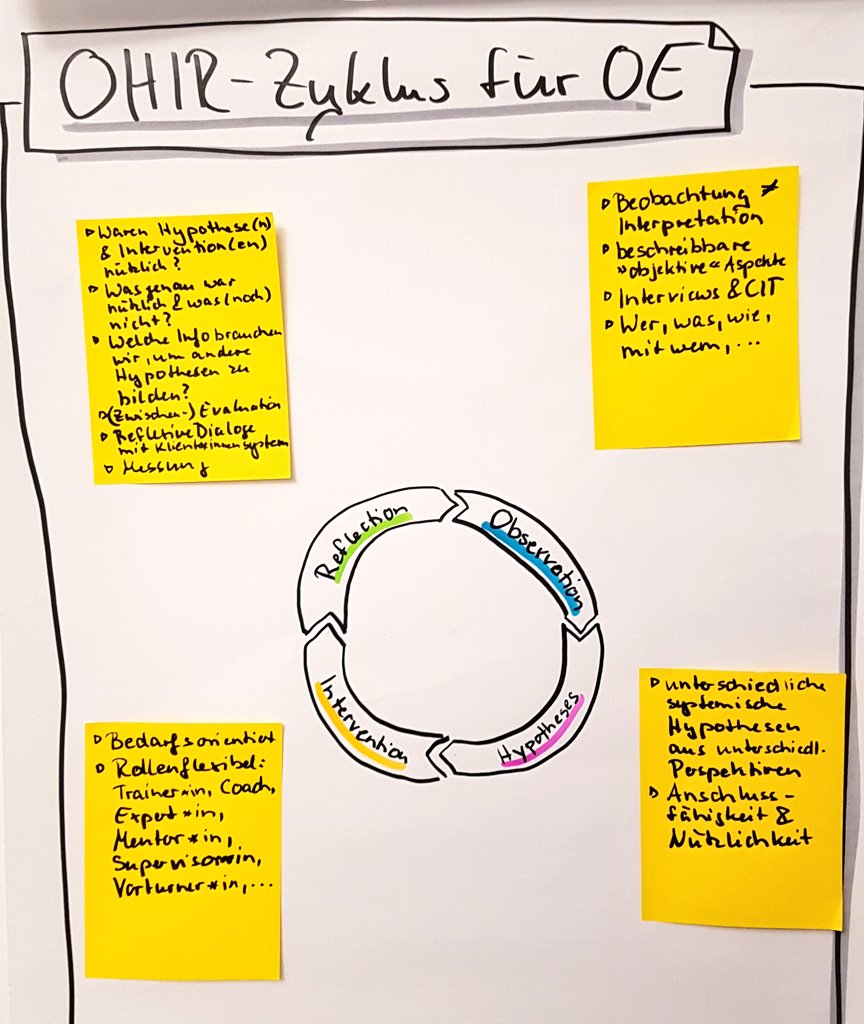 OHIR-Zyklus für OE
▹ Waren Hypothese(n)
& Intervention(en)
nützlich?
▹ Was genau war
nützlich & was (noch)
nicht?
▹ Welche Info brauchen
wir, um andere
Hypothesen zu
bilden?
▹ (Zwischen-) Evaluation
▹ Reflexive Dialoge
mit Klient*innensystem
▹ Messung
▹ Beobachtung ≠
Interpretation
▹ beschreibbare
"objektive" Aspekte
▹ Interviews & CIT
▹ Wer, was, wie,
mit wem, ...
Reflection
Observation
Intervention
Hypotheses
▹ Bedarfsorientiert
▹ Rollenflexibel:
Trainer*in, Coach,
Expert*in,
Mentor*in,
Supervisor*in,
Vorturner*in, ...
▹ unterschiedliche
systemische
Hypothesen
aus unterschiedl.
Perspektiven
▹ Anschluss-
fähigkeit &
Nützlichkeit